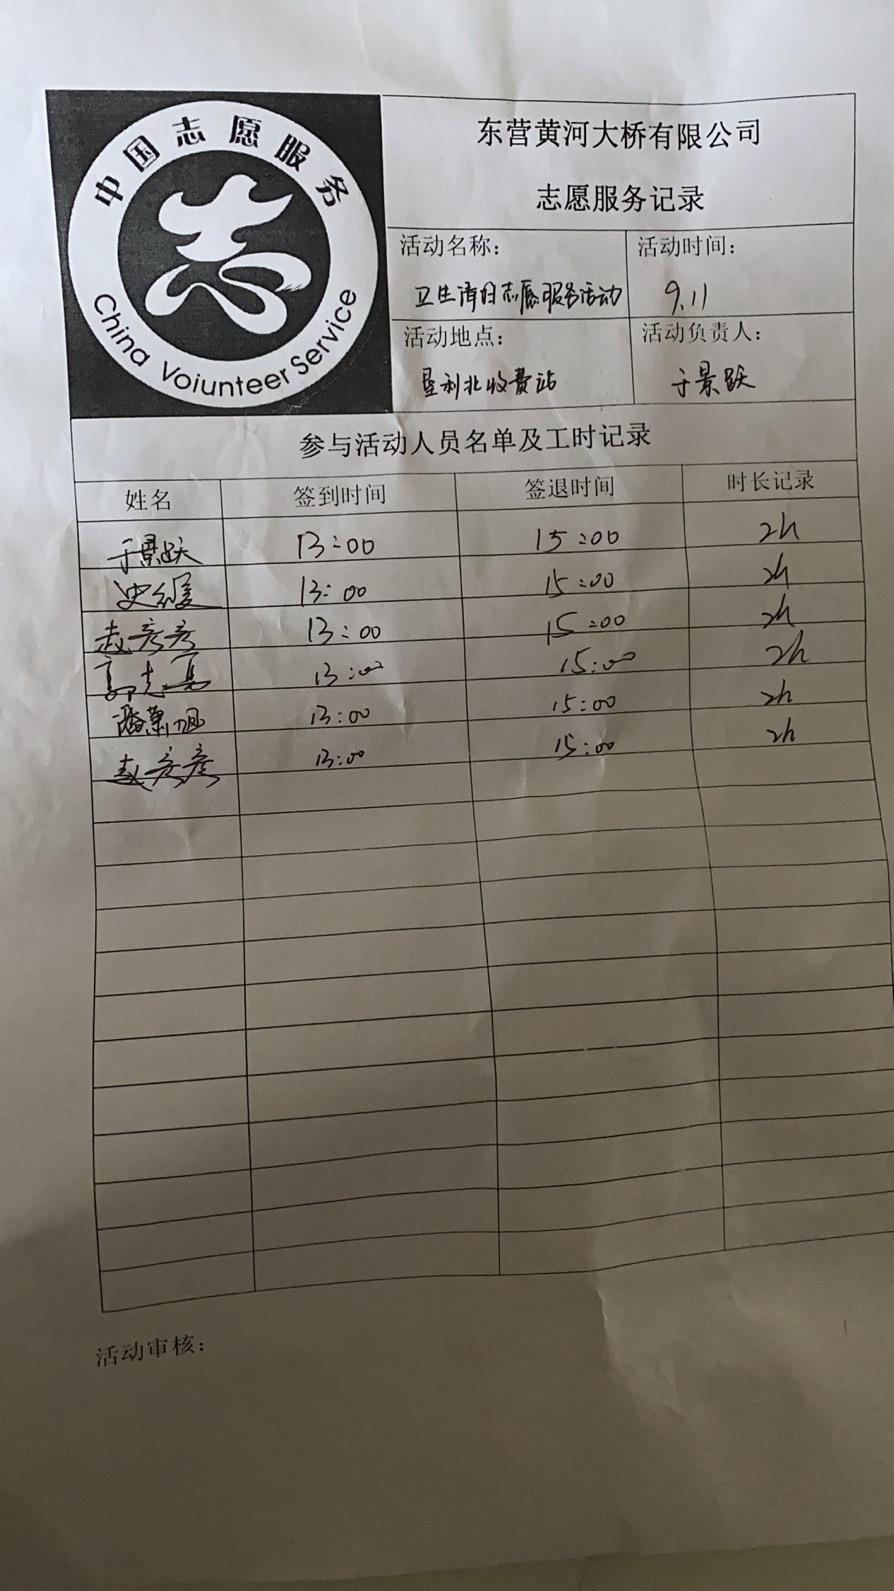 中国志愿服务
China Voiunteer Service
东营黄河大桥有限公司
志愿服务记录
活动名称： 活动时间：
卫生清扫志愿服务活动 9.11
活动地点： 活动负责人：
垦利北收费站 于景跃
参与活动人员名单及工时记录
姓名 签到时间 签退时间 时长记录
于景跃 13:00 15:00 2h
史 13:00 15:00 2h
赵彦彦 13:00 15:00 2h
郭志勇 13:00 15:00 2h
潘 13:00 15:00 2h
赵彦彦 13:00 15:00 2h
活动审核：